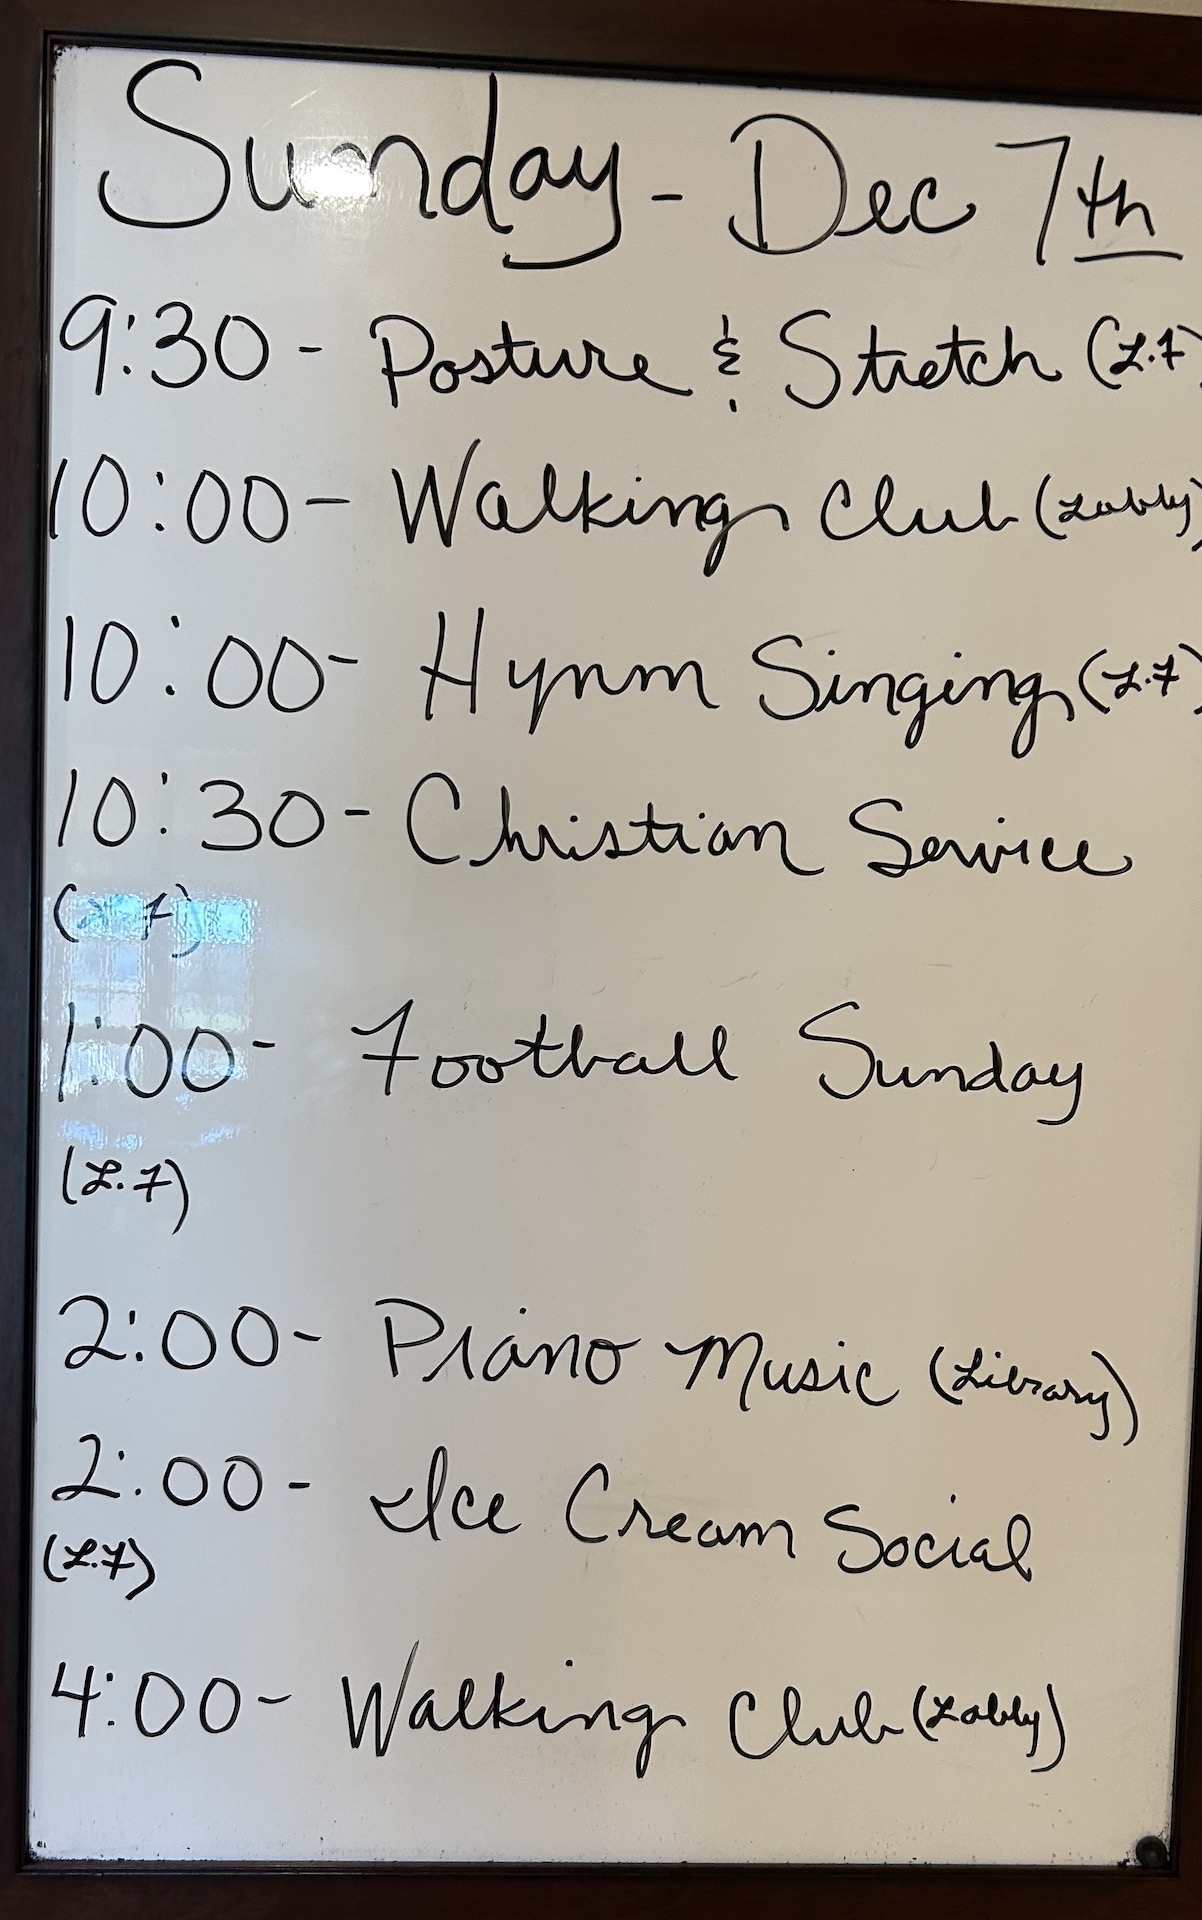 Sunday - Dec 7th
9:30 - Posture & Stretch (L.F)
10:00 - Walking Club (Lobby)
10:00 - Hynm Singing (L.F)
10:30 - Christian Service
(L.F)
1:00 - Football Sunday
(L.F)
2:00 - Piano Music (Library)
2:00 - Ice Cream Social
(L.F)
4:00 - Walking Club (Lobby)